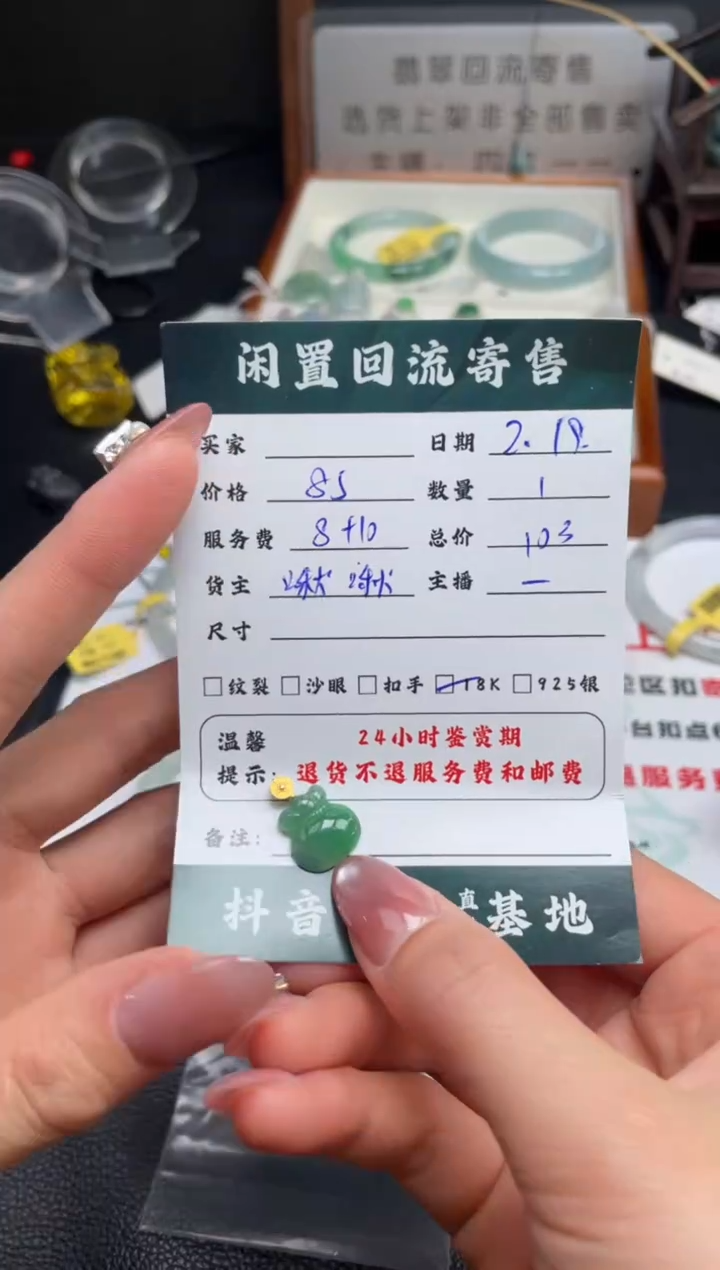 翡翠回流寄售
选货上架非全部售卖
闲置回流寄售
买家 日期 2.19.
价格 85 数量 1
服务费 8+10 总价 103
货主 主播 一
尺寸
□纹裂 □沙眼 □扣手 □18K □925银
温馨 24小时鉴赏期
提示: 退货不退服务费和邮费
备注:
抖音 直 基地
区扣
台扣点6
服务费